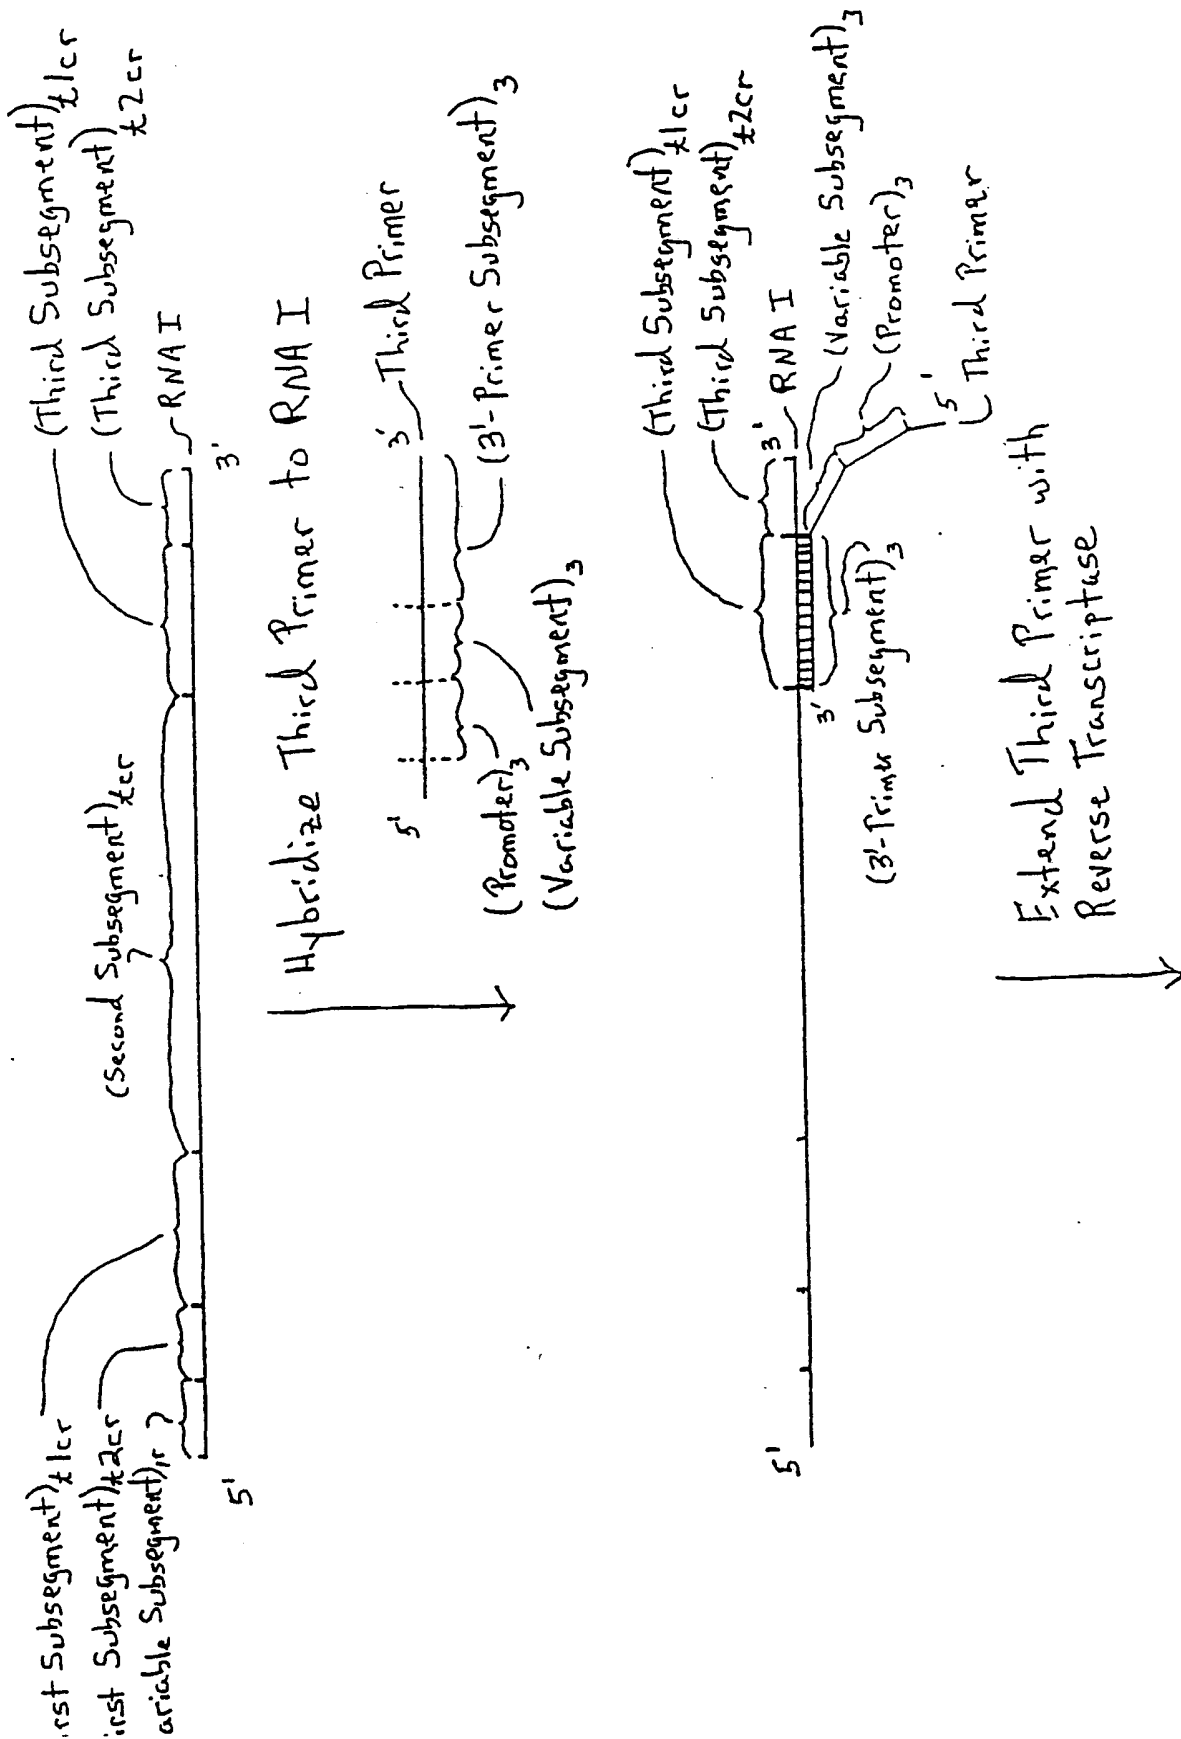 (Third Subsegment)t1cr
(Third Subsegment)t2cr
RNA I
(Second Subsegment)tcr
irst Subsegment)t1cr
irst Subsegment)t2cr
ariable Subsegment)1r
5'
3'
Hybridize Third Primer to RNA I
5'
3'
Third Primer
(3'-Primer Subsegment)3
(Promoter)3
(Variable Subsegment)3
(Third Subsegment)t1cr
(Third Subsegment)t2cr
5'
3'
RNA I
(Variable Subsegment)3
(Promoter)3
5'
Third Primer
3'
(3'-Primer Subsegment)3
Extend Third Primer with
Reverse Transcriptase